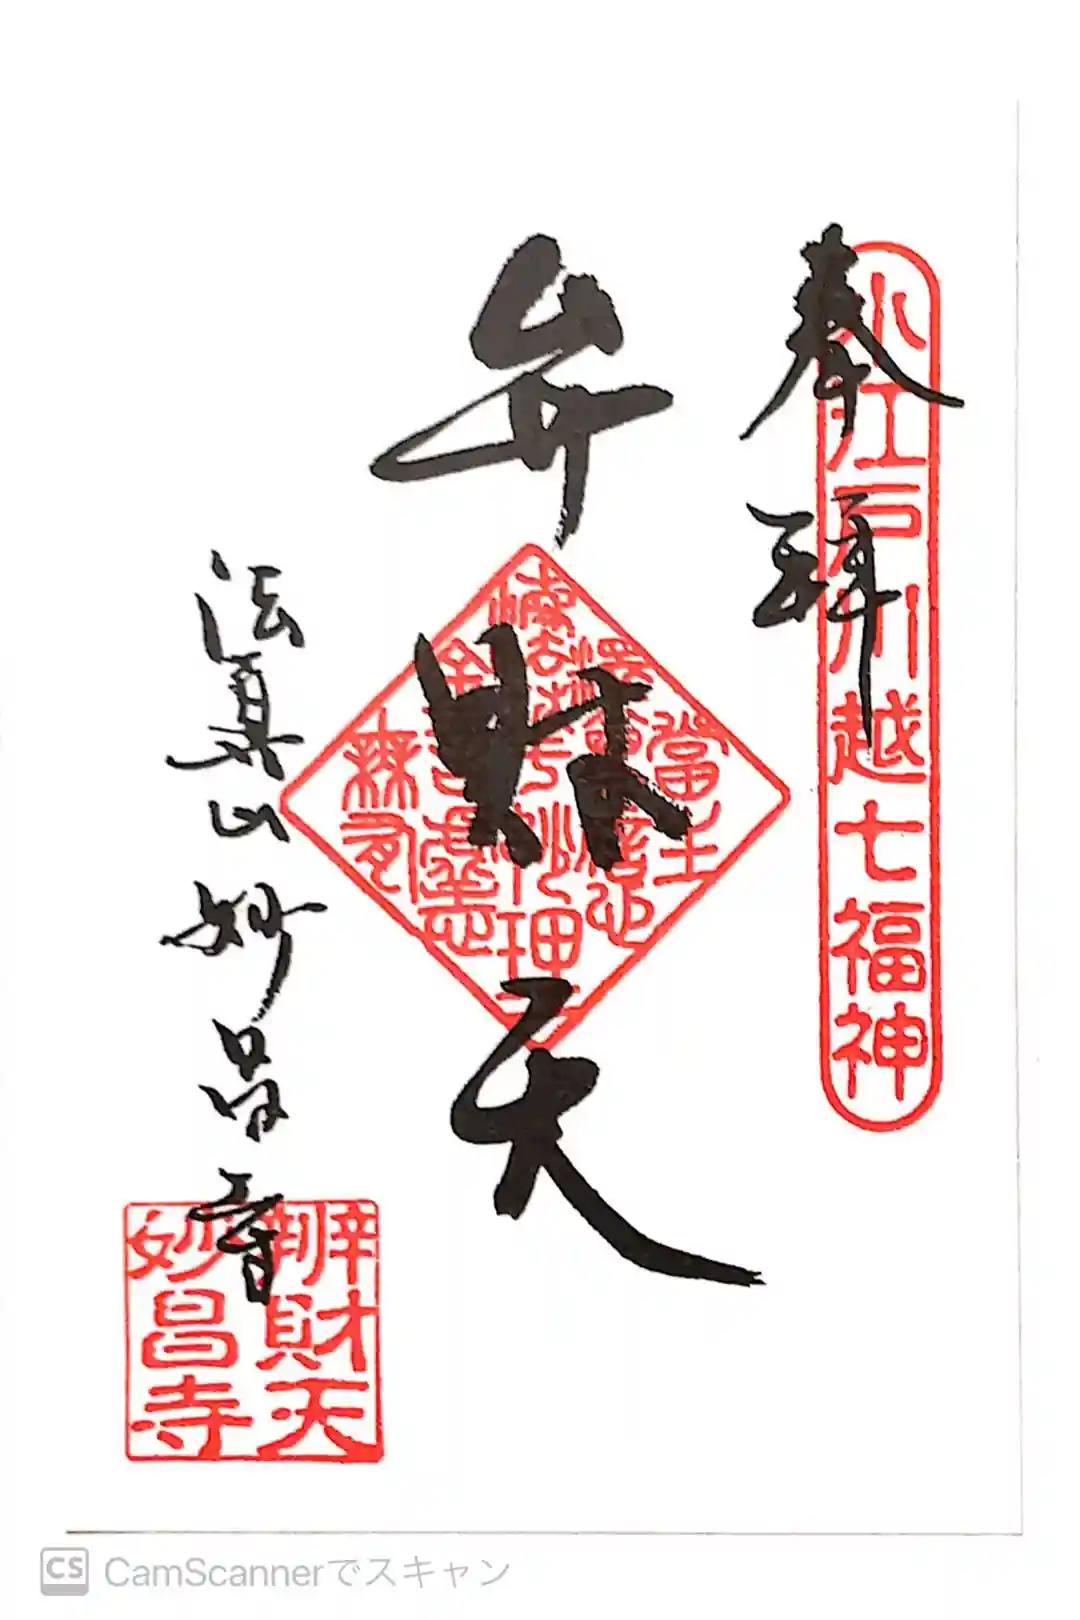 奉拝
小江戸川越七福神
弁財天
法真山妙昌寺
辨財天
妙昌寺
CS CamScannerでスキャン